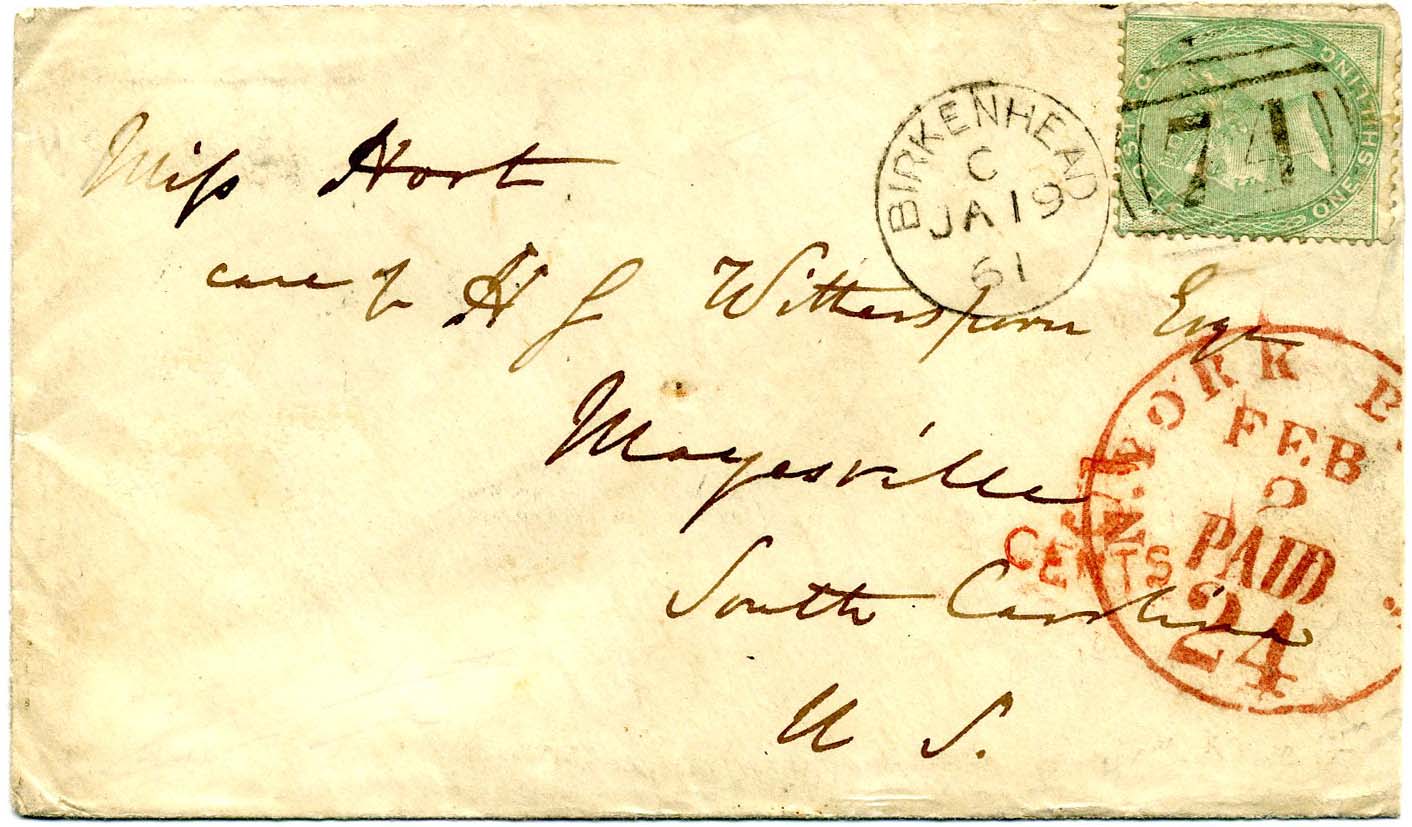 Miss Hort
care of H J Witherspoon Esqr
Mayesville
South Carolina
U S.
BIRKENHEAD
C
JA 19
61
POSTAGE ONE SHILLING
74
N. YORK
FEB
2
PAID
24
CENTS